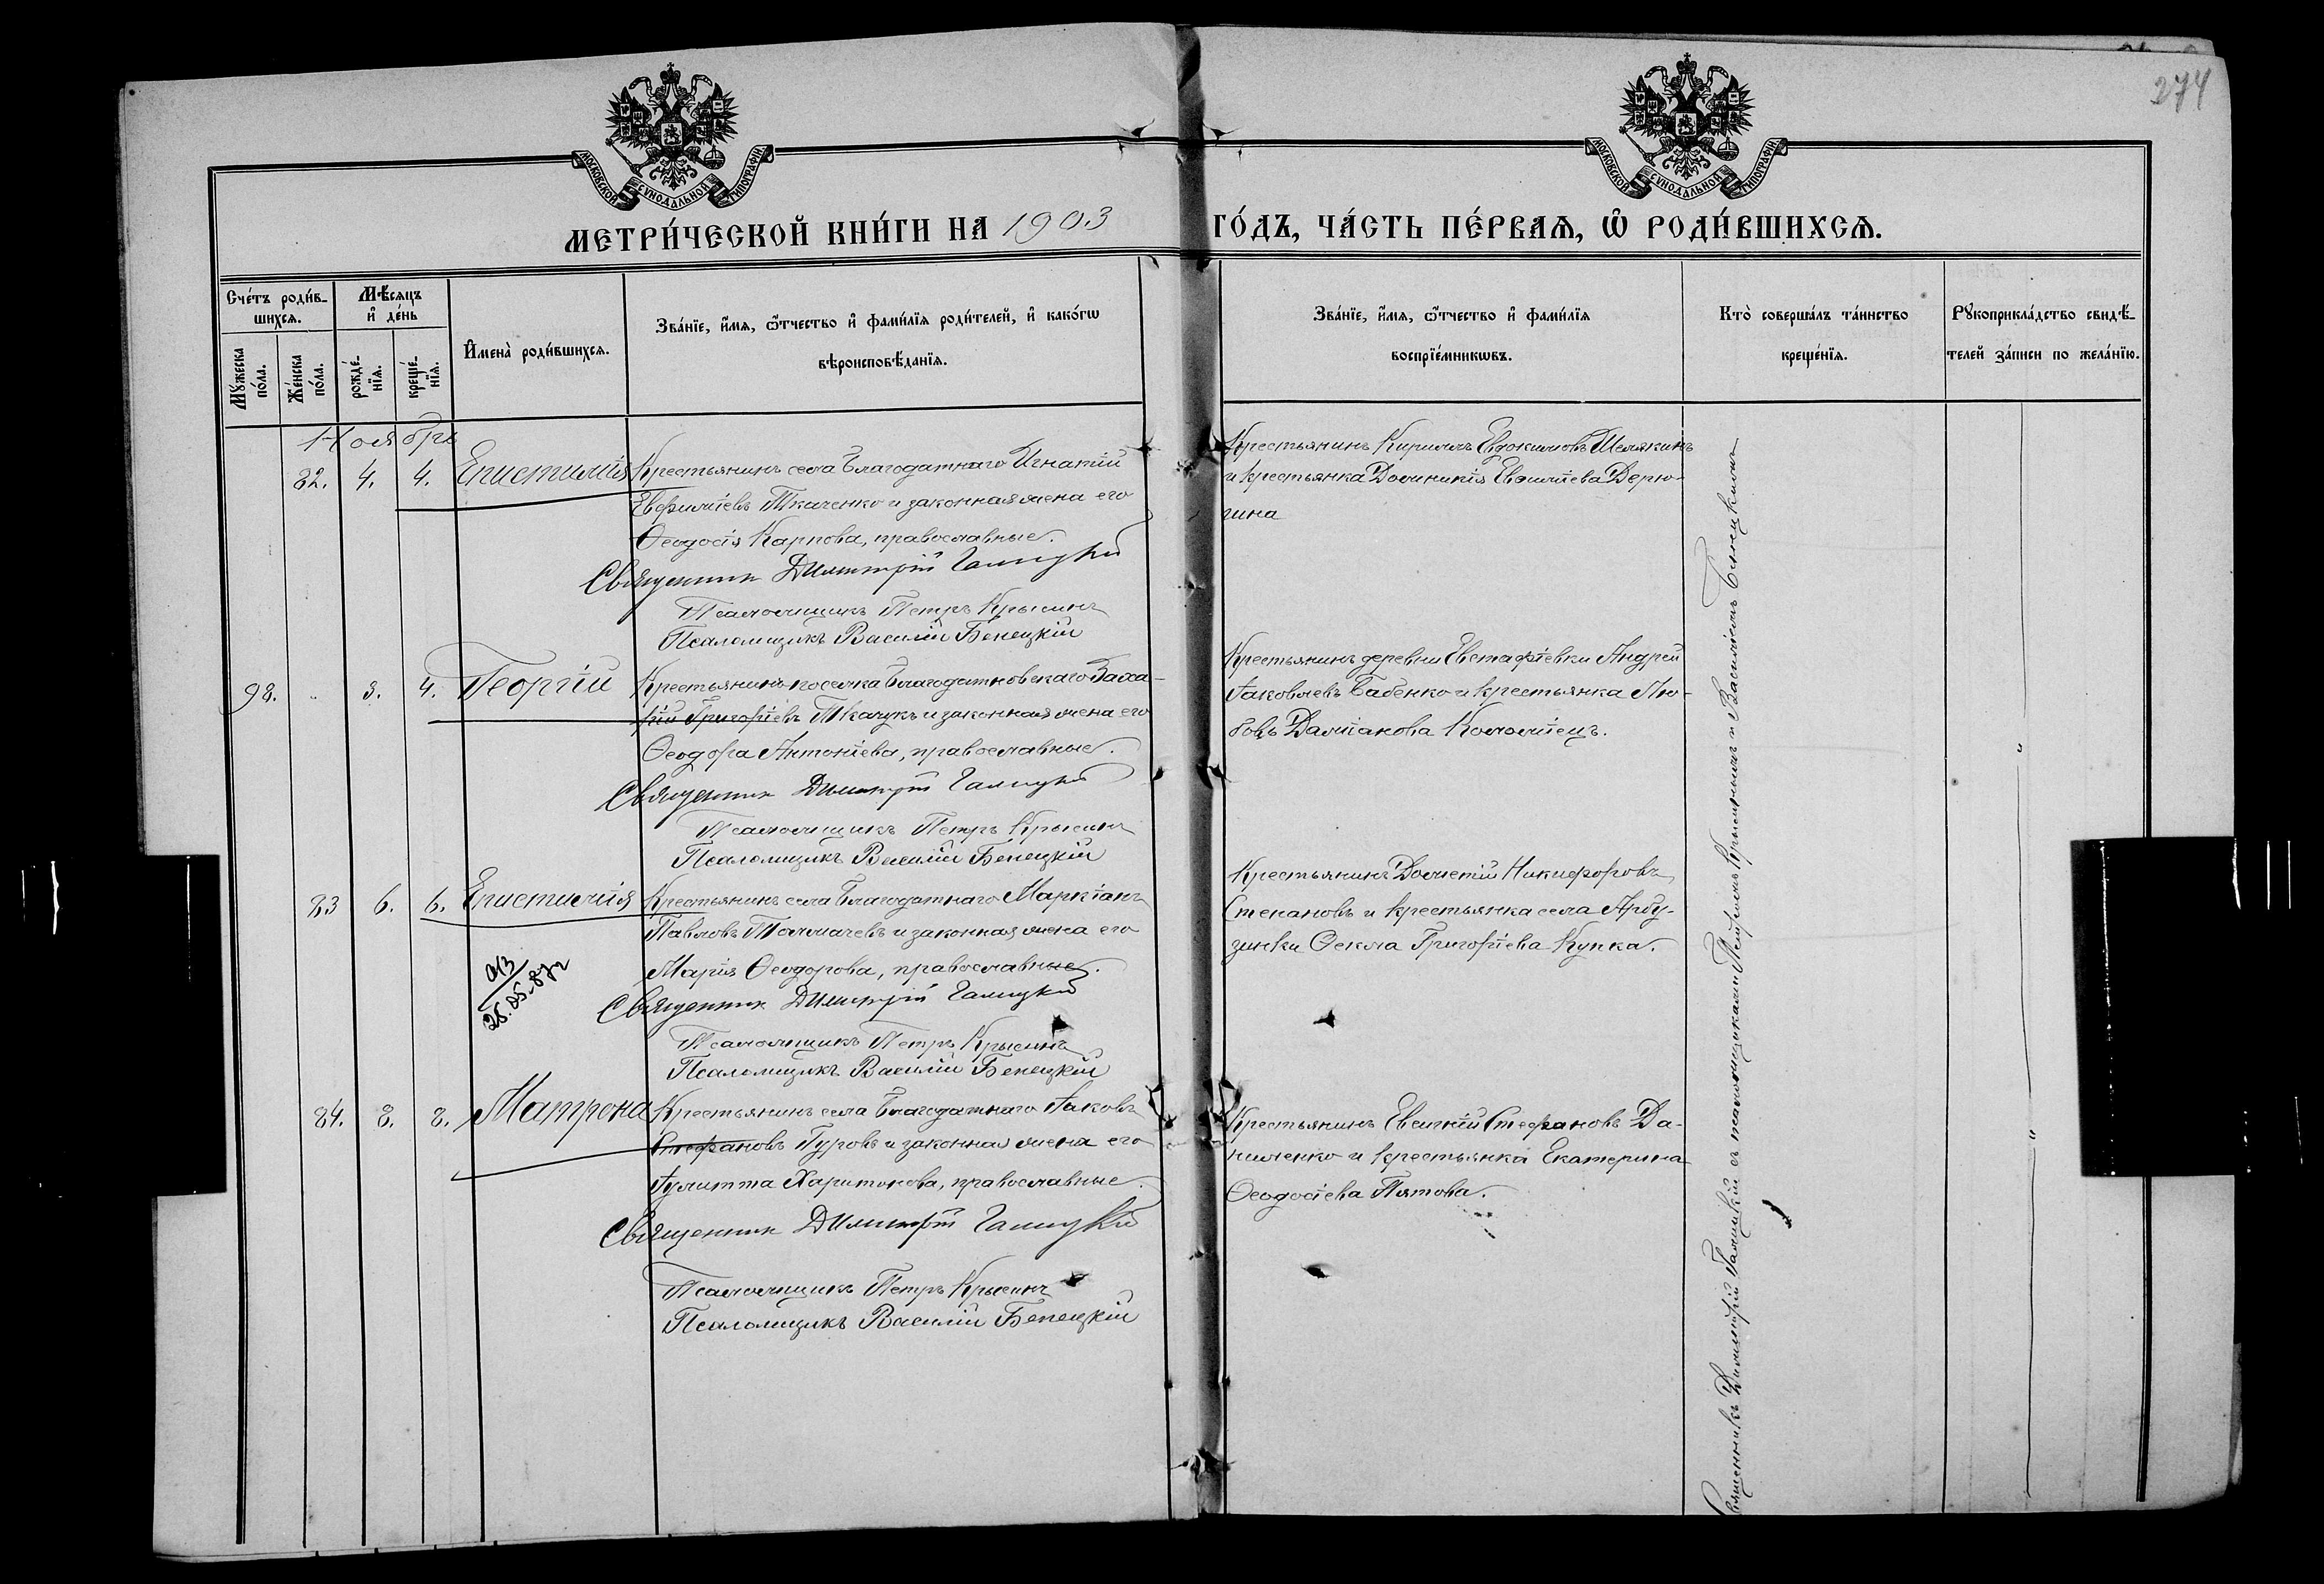 274
МОСКОВСКОЙ СУНОДАЛЬНОЙ ТИПОГРАФІИ
МОСКОВСКОЙ СУНОДАЛЬНОЙ ТИПОГРАФІИ
МЕТРИ́ЧЕСКОЙ КНИ́ГИ НА 1903 ГО́ДЪ, ЧА́СТЬ ПЕ́РВАѦ, Ѡ҆ РОДИ́ВШИХСѦ.
Сче́тъ роди́в-
шихсѧ.
Мꙋ́жеска по́ла.
Же́нска по́ла.
Мѣ́сѧцъ
и҆ де́нь
рожде́-нїѧ.
креще́-нїѧ.
И҆мена̀ роди́вшихсѧ.
Зва́нїе, и҆́мѧ, ѻ҆́тчество и҆ фами́лїѧ роди́телей, и҆ како́гѡ
вѣроисповѣ́данїѧ.
Зва́нїе, и҆́мѧ, ѻ҆́тчество и҆ фами́лїѧ
воспрїе́мникѡвъ.
Кто̀ соверша́лъ та́инство
креще́нїѧ.
Рꙋкоприкла́дство свидѣ́-
телей за́писи по жела́нїю.
Ноября
82. 4. 4. Епистимія
Крестьянинъ села Благодатнаго Игнатій
Евфиміевъ Ткаченко и законная жена его
Ѳеодосія Карпова, православные.
Священник Димитрій Галицкій
Псаломщикъ Петръ Крысинъ
Псаломщикъ Василій Бенецкій
Крестьянинъ Кириллъ Евдокимовъ Шелякинъ
и крестьянка Домникія Евѳиміева Верю-
гина
98. " 3. 4. Георгій
Крестьянинъ поселка Благодатновскаго Заха-
рій Григоріевъ Ткачукъ и законная жена его
Ѳеодора Антоніева, православные.
Священник Димитрій Галицкій
Псаломщикъ Петръ Крысинъ
Псаломщикъ Василій Бенецкій
Крестьянинъ деревни Евстафіевки Андрей
Іаковлевъ Бабенко и крестьянка Лю-
бовь Даміанова Коломіецъ.
83 6. 6. Епистимія
Крестьянинъ села Благодатнаго Маркіанъ
Павловъ Толмачевъ и законная жена его
Марія Ѳеодорова, православные.
Священник Димитрій Галицкій
Псаломщикъ Петръ Крысинъ
Псаломщикъ Василій Бенецкій
25.05.87г
Крестьянинъ Дометій Никифоровъ
Степановъ и крестьянка села Арбу-
зинки Ѳекла Григоріева Купка.
84. 8. 8. Матрона
Крестьянинъ села Благодатнаго Іаковъ
Стефановъ Гуровъ и законная жена его
Іулитта Харитонова, православные.
Священник Димитрій Галицкій
Псаломщикъ Петръ Крысинъ
Псаломщикъ Василій Бенецкій
Крестьянинъ Евсигній Стефановъ Да-
ниленко и крестьянка Екатерина
Ѳеодосіева Пятова.
Священникъ Димитрій Галицкій съ псаломщиками Петромъ Крысинымъ и Василіемъ Бенецкимъ